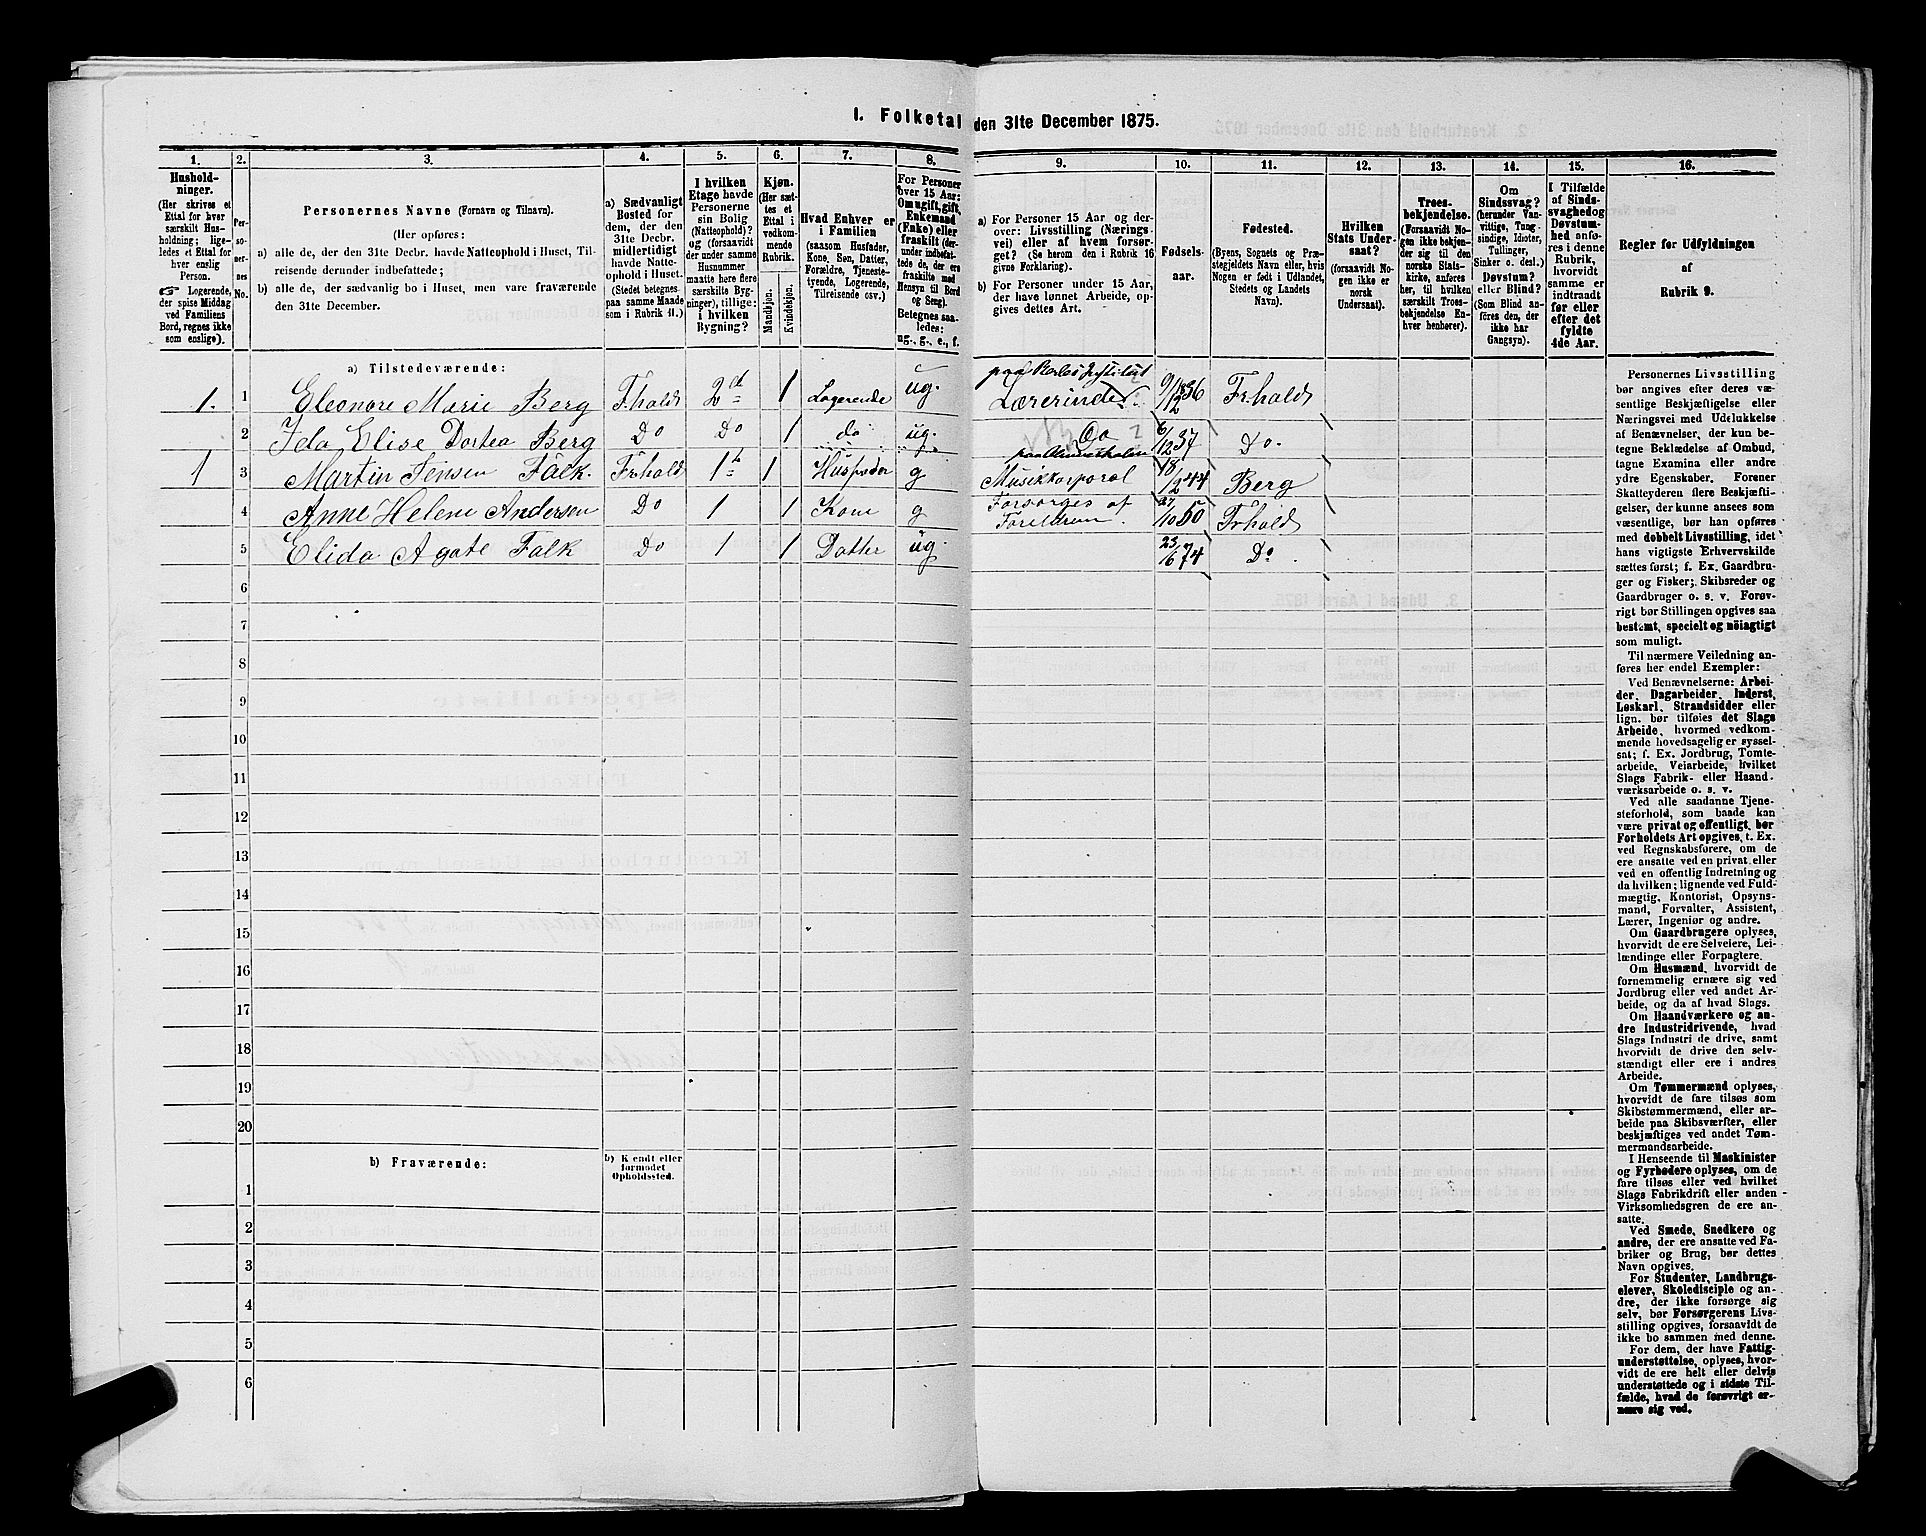 I. Folketal den 31te December 1875.
1. 2. 3. 4. 5. 6. 7. 8. 9. 10. 11. 12. 13. 14. 15. 16.
Hushold-
ninger.
(Her skrives et
Ettal for hver
særskilt Hus-
holdning; lige-
ledes et Ettal for
hver enslig
Person.
☞ Logerende,
der spise Middag
ved Familiens
Bord, regnes ikke
som enslige).
Per-
so-
ner-
nes
No.
Personernes Navne (Fornavn og Tilnavn).
(Her opføres:
a) alle de, der den 31te Decbr. havde Natteophold i Huset, Til-
reisende derunder indbefattede;
b) alle de, der sædvanlig bo i Huset, men vare fraværende
den 31te December.
a) Sædvanligt
Bosted for
dem, der den
31te Decbr.
midlertidigt
havde Natte-
ophold i Huset.
(Stedet betegnes
paa samme Maade
som i Rubrik 11.)
I hvilken
Etage havde
Personerne
sin Bolig
(Natteophold)?
og (forsaavidt
der under samme
Husnummer
maatte høre flere
særskilte Byg-
ninger), tillige:
i hvilken
Bygning?
Kjøn.
(Her sæt-
tes et
Ettal i
vedkom-
mende
Rubrik.
Mandkjøn.
Kvindekjøn.
Hvad Enhver er
i Familien
(saasom Husfader,
Kone, Søn, Datter,
Forældre, Tjeneste-
tyende, Logerende,
Tilreisende osv.)
For Personer
over 15 Aar:
Om ugift, gift,
Enkemand
(Enke) eller
fraskilt (der-
under indbefat-
tede de, der ere
fraskilte med
Hensyn til Bord
og Seng).
Betegnes saa-
ledes:
ug., g., e., f.
a) For Personer 15 Aar og der-
over: Livsstilling (Nærings-
vei) eller af hvem forsør-
get? (Se herom den i Rubrik 16
givne Forklaring).
b) For Personer under 15 Aar,
der have lønnet Arbeide, op-
gives dettes Art.
Fødsels-
aar.
Fødested.
(Byens, Sognets og Præ-
stegjeldets Navn eller, hvis
Nogen er født i Udlandet,
Stedets og Landets
Navn).
Hvilken
Stats Under-
saat?
(forsaavidt No-
gen ikke er
norsk
Undersaat).
Troes-
bekjendelse.
(Forsaavidt No-
gen ikke beken-
der sig til den
norske Stats-
kirke, anføres
her, til hvilken
særskilt Troes-
bekjendelse En-
hver henhører).
Om
Sindssvag?
(herunder Van-
vittige, Tung-
sindige, Idioter,
Tullinger,
Sinker o. desl.)
Døvstum?
eller Blind?
(Som Blind an-
føres den, der
ikke har
Gangsyn).
I Tilfælde
af Sinds-
svaghed og
Døvstum-
hed anfø-
res i denne
Rubrik,
hvorvidt
samme er
indtraadt
før eller
efter det
fyldte
4de Aar.
Regler for Udfyldningen
af
Rubrik 9.
a) Tilstedeværende:
1. 1 Eleonore Marie Berg F.hald 2d 1 Logerende ug. Lærerinde 9/12 1836 Fr.hald
2 Ida Elise Dortea Berg Do Do 1 do ug. Do 6/12 37 Do.
1 3 Martin Jensen Falk. Frhald 1t 1 Husfader g Musikkorporal 18/2 44 Berg
4 Anne Helene Andersen Do 1 1 Kone g Forsørges af Forældrene. 27/10 50 Frhald
5 Elida Agate Falk Do 1 1 Datter ug. 23/6 74 Do.
6
7
8
9
10
11
12
13
14
15
16
17
18
19
20
b) Fraværende: b) Kjendt eller
formodet
Opholdssted.
1
2
3
4
5
6
Personernes Livsstilling
bør angives efter deres væ-
sentlige Beskjæftigelse eller
Næringsvei med Udelukkelse
af Benævnelser, der kun be-
tegne Beklædelse af Ombud,
tagne Examina eller andre
ydre Egenskaber. Forener
Skatteyderen flere Beskjæfti-
gelser, der kunne ansees som
væsentlige, bør han opføres
med dobbelt Livsstilling, idet
hans vigtigste Erhvervskilde
sættes først; f. Ex. Gaardbru-
ger og Fisker; Skibsreder og
Gaardbruger o. s. v. Forøv-
rigt bør Stillingen opgives saa
bestemt, specielt og nöiagtigt
som muligt.
Til nærmere Veiledning an-
føres her endel Exempler:
Ved Benævnelserne: Arbei-
der, Dagarbeider, Inderst,
Løskarl, Strandsidder eller
lign. bør tilføies det Slags
Arbeide, hvormed vedkom-
mende hovedsagelig er syssel-
sat; f. Ex. Jordbrug, Tomte-
arbeide, Veiarbeide, hvilket
Slags Fabrik- eller Haand-
værksarbeide o. s. v.
Ved alle saadanne Tjene-
steforhold, som baade kan
være privat og offentligt, bør
Forholdets Art opgives, t. Ex.
ved Regnskabsførere, om de
ere ansatte ved en privat eller
ved en offentlig Indretning og
da hvilken; lignende ved Fuld-
mægtig, Kontorist, Opsyns-
mand, Forvalter, Assistent,
Lærer, Ingeniør og andre.
Om Gaardbrugere oplyses,
hvorvidt de ere Selveiere, Lei-
lændinge eller Forpagtere.
Om Husmænd, hvorvidt de
fornemmelig ernære sig ved
Jordbrug eller ved andet Ar-
beide, og da af hvad Slags.
Om Haandværkere og an-
dre Industridrivende, hvad
Slags Industri de drive, samt
hvorvidt de drive den selv-
stændigt eller ere i andres
Arbeide.
Om Tømmermænd oplyses,
hvorvidt de fare tilsøs som
Skibstømmermænd, eller ar-
beide paa Skibsværfter, eller
beskjæftiges ved andet Tøm-
mermandsarbeide.
I Henseende til Maskinister
og Fyrbødere oplyses, om de
fare tilsøs eller ved hvilket
Slags Fabrikdrift eller anden
Virksomhedsgren de ere an-
satte.
Ved Smede, Snedkere og
andre, der ere ansatte ved Fa-
briker og Brug, bør dettes
Navn opgives.
For Studenter, Landbrugs-
elever, Skoledisciple og an-
dre, der ikke forsørge sig
selv, bør Forsørgerens Livs-
stilling opgives, forsaavidt de
ikke bo sammen med denne.
For dem, der have Fattig-
understøttelse, oplyses, hvor-
vidt de ere helt eller delvis
understøttede og i sidste Til-
fælde, hvad de forøvrigt er-
nære sig ved.